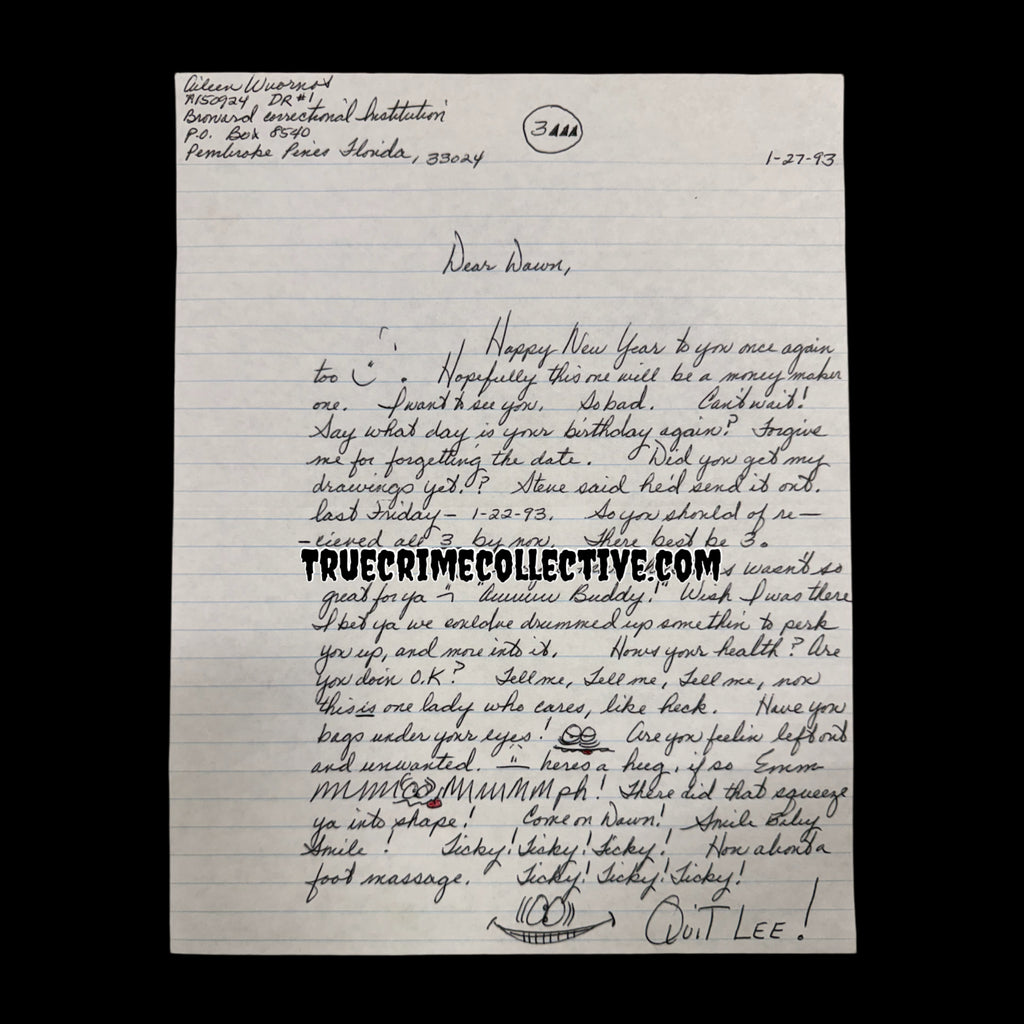 Aileen Wuornos
A150924 DR#1
Broward correctional Institution
P.O. Box 8540
Pembroke Pines Florida, 33024
3
1-27-93
Dear Dawn,
Happy New Year to you once again
too . Hopefully this one will be a money maker
one. I want to see you. So bad. Can't wait!
Say what day is your birthday again? Forgive
me for forgetting the date. Did you get my
drawings yet.? Steve said he'd send it out.
last Friday - 1-22-93. So you should of re-
-cieved all 3 by now. There best be 3.
TRUECRIMECOLLECTIVE.COM
wasn't so
great for ya "Awwwww Buddy!" Wish I was there
I bet ya we couldve drummed up somethin to perk
you up, and more into it. Hows your health? Are
you doin O.K? Tell me, Tell me, Tell me, now
this is one lady who cares, like heck. Have you
bags under your eyes! Are you feelin left out
and unwanted. heres a hug, if so Emm
MMMMMMMMph! There did that squeeze
ya into shape! Come on Dawn! Smile
Smile! Ticky! Ticky! Ticky! How about a
foot massage. Ticky! Ticky! Ticky!
QUIT LEE!